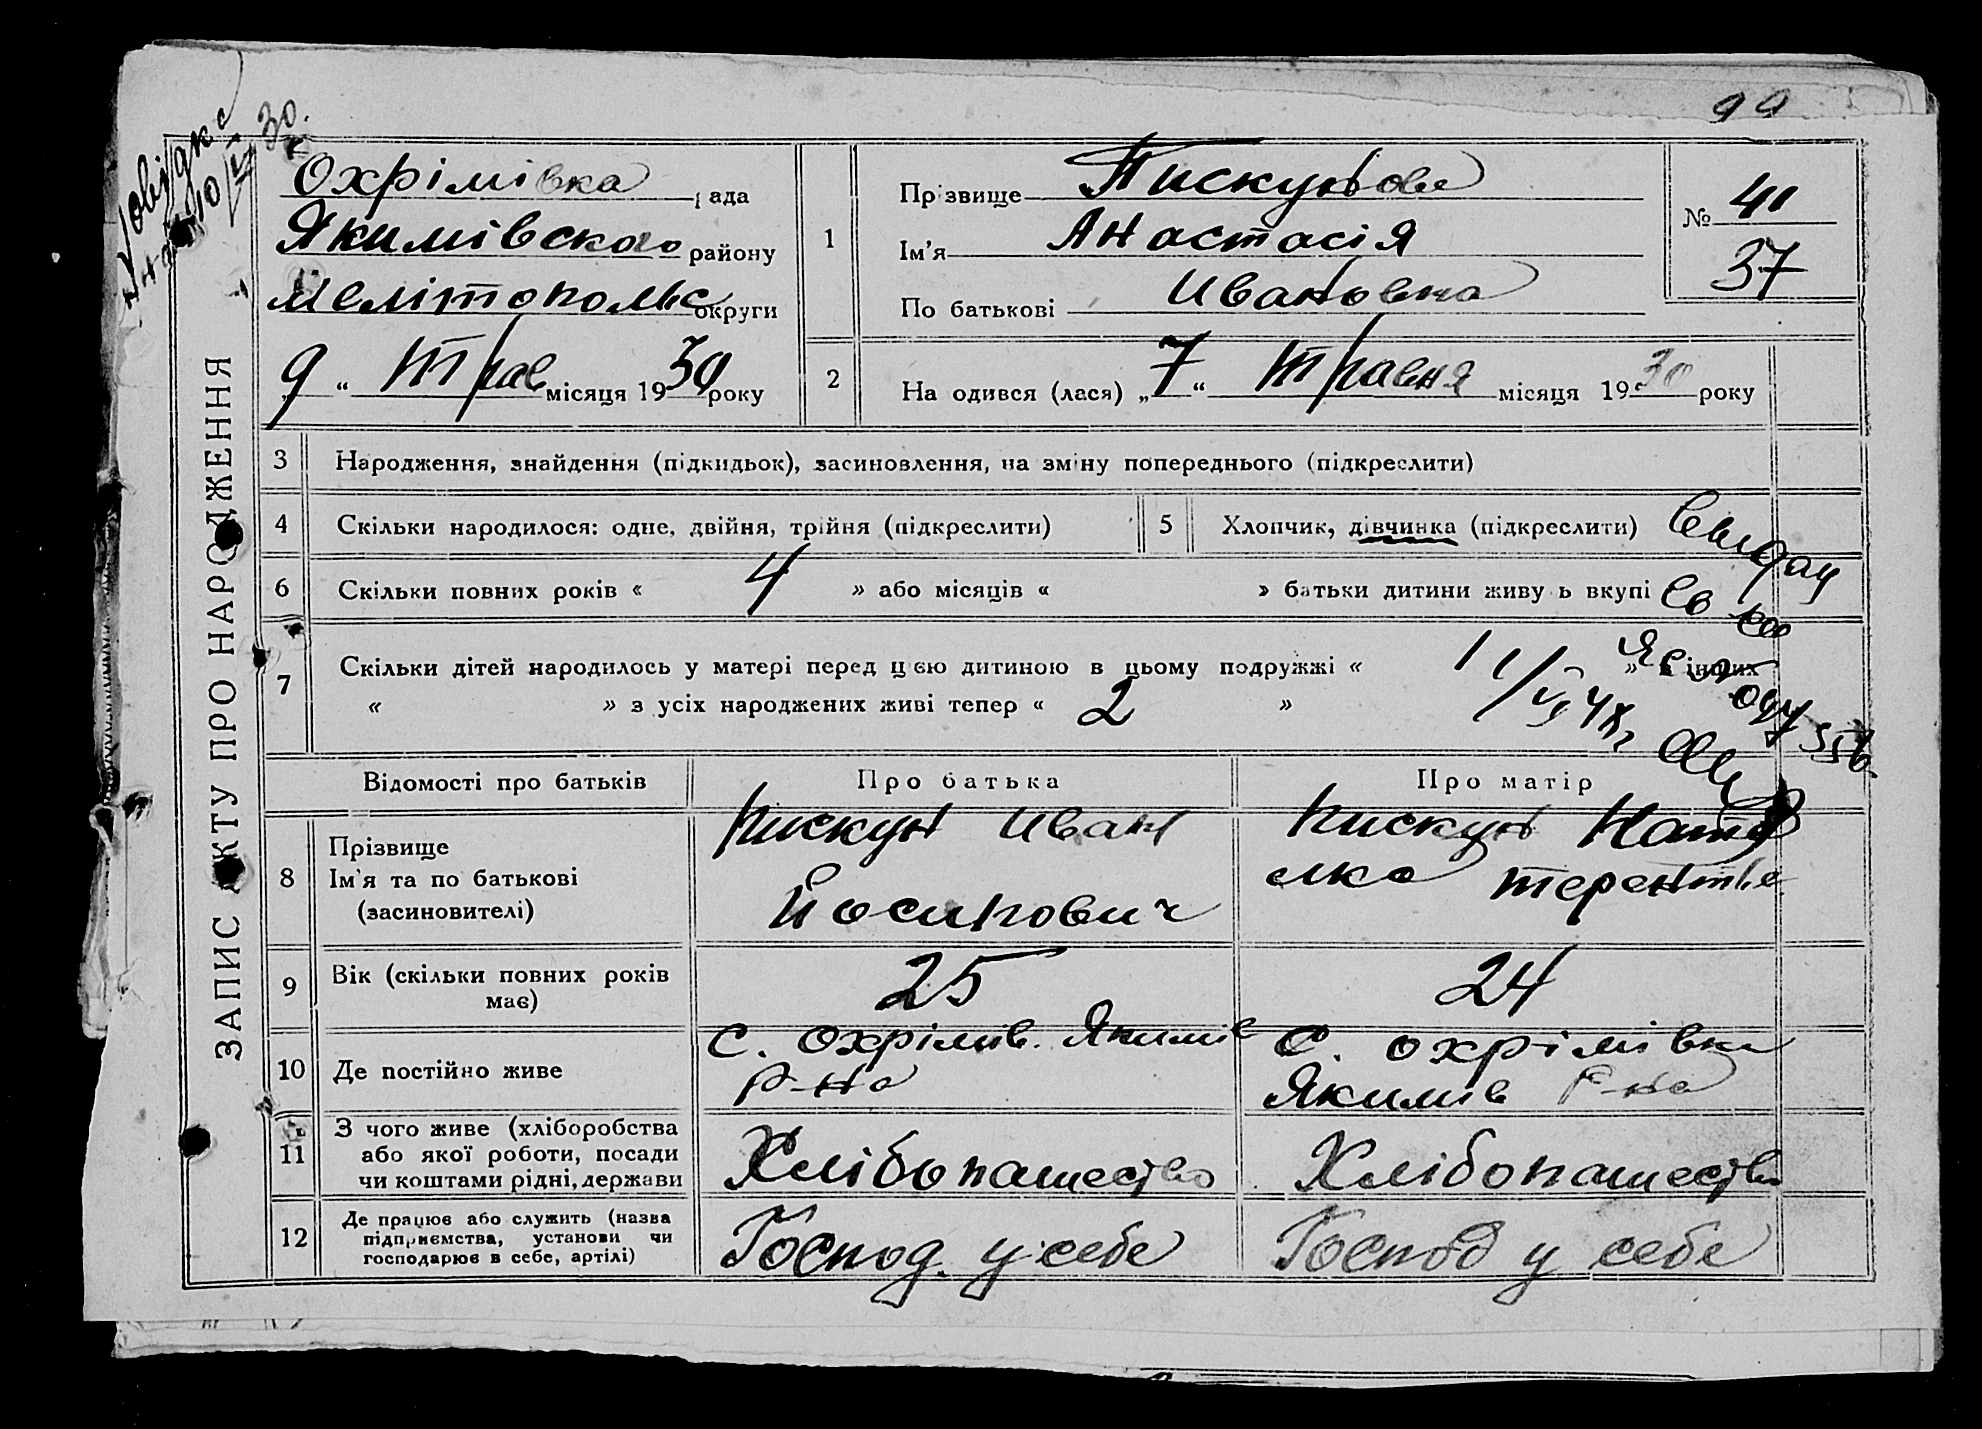 99
10/V 30.
ЗАПИС АКТУ ПРО НАРОДЖЕННЯ
Охрімівка рада
Якимівского району
Мелітопольс округи
9 “ Трав місяця 1930 року
1
Прізвище Пискунова
Ім’я Анастасія
По батькові Ивановна
№ 41
37
2
Народився (лася) „ 7 “ Травня місяця 1930 року
3 Народження, знайдення (підкидьок), засиновлення, на зміну попереднього (підкреслити)
4 Скільки народилося: одне, двійня, трійня (підкреслити)
5 Хлопчик, дівчинка (підкреслити)
6 Скільки повних років « 4 » або місяців « » батьки дитини живуть вкупі
7 Скільки дітей народилось у матері перед цією дитиною в цьому подружжі « 1 » в інших
« » з усіх народжених живі тепер « 2 »
Відомості про батьків
Про батька
Про матір
8
Прізвище
Ім’я та по батькові
(засиновителі)
Пискун Иван
Йосипович
Пискун Ната
лка Терентье
9
Вік (скільки повних років
має)
25
24
10 Де постійно живе
с. Охрімів. Якимів
р-на
с. Охрімівка
Якимів р-на
11
З чого живе (хліборобства
або якої роботи, посади
чи коштами рідні, держави
Хлібопашество
Хлібопашество
12
Де працює або служить (назва
підприємства, установи чи
господарює в себе, артілі)
Господ. у себе
Господ у себе